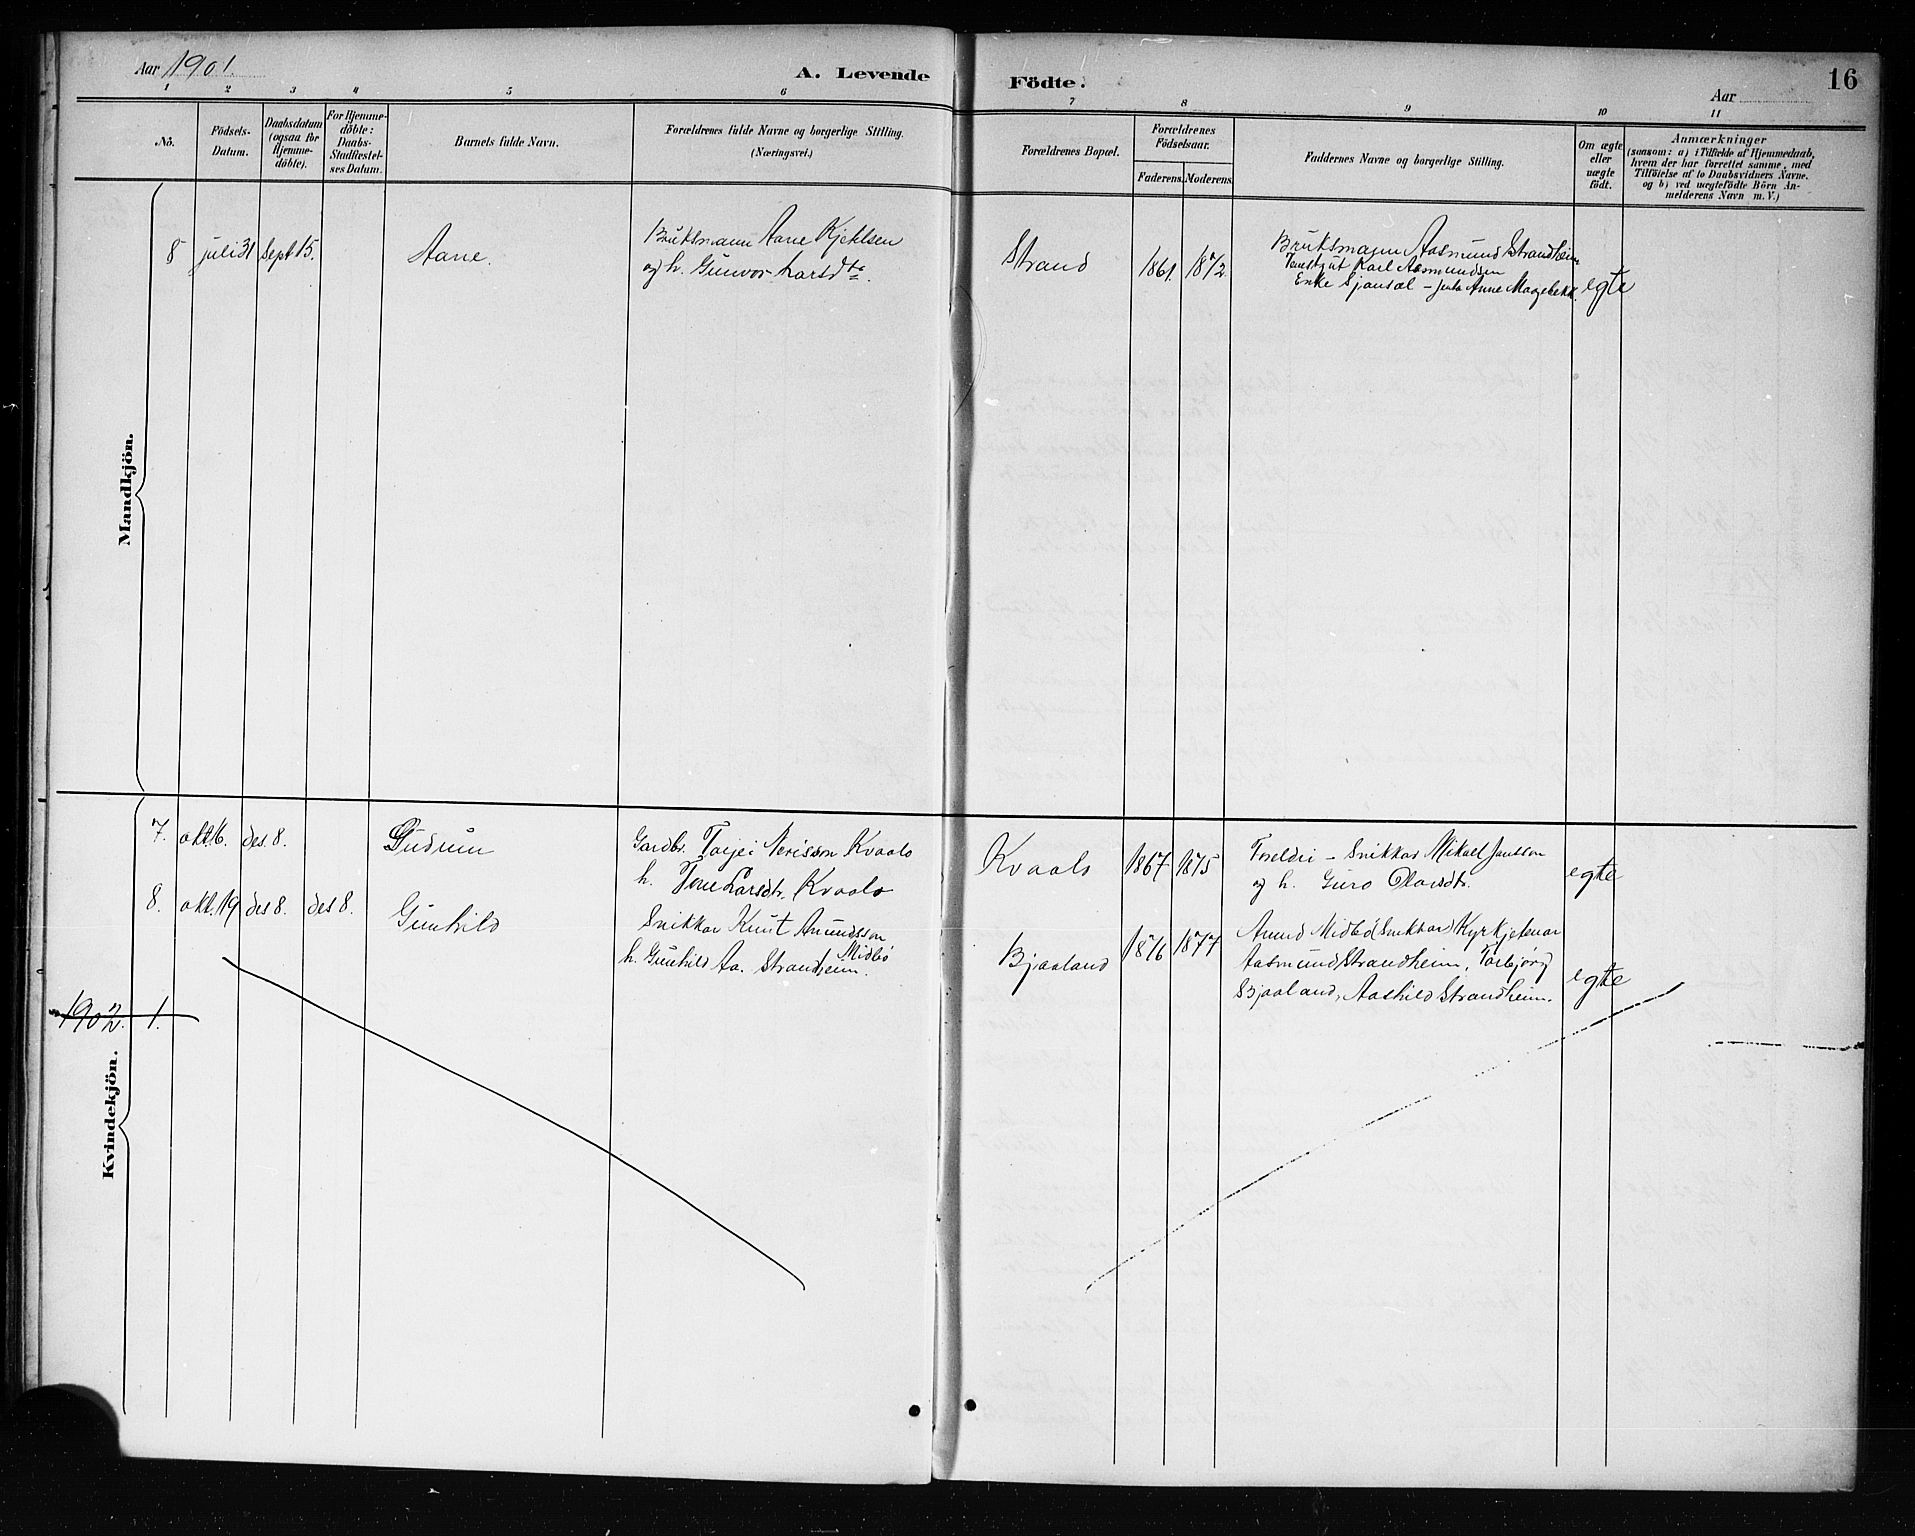 Aar 1901.
A. Levende Födte.
Aar
16
1 2 3 4 5 6 7 8 9 10 11
No.
Födsels-
Datum.
Daabsdatum
(ogsaa for
Hjemme-
döbte).
For Hjemme-
döbte:
Daabs-
Stadfæstel-
ses Datum.
Barnets fulde Navn.
Forældrenes fulde Navne og borgerlige Stilling.
(Næringsvei.)
Forældrenes Bopæl.
Forældrenes
Födselsaar.
Faderens. Moderens.
Faddernes Navne og borgerlige Stilling.
Om ægte
eller
uægte
födt.
Anmærkninger
(saasom: a) i Tilfælde af Hjemmedaab,
hvem der har forrettet samme, med
Tilföielse af to Daabsvidners Navne.
og b) ved uægtefödte Börn An-
melderens Navn m. V.)
Mandkjön.
8 juli 31 Sept 15. Aane.
Bruksmann Aane Kjetilsen
og h. Gunvor Larsdtr.
Strand 1861. 1872
Bruksmann Aasmund Strandheim
Tenestgut Karl Aasmundsen
Enke Sjausæt – Anne Maagebekk.
egte
Kvindekjön.
7. okt. 16. des. 8. Gudrun
Gardbr. Torjei Nerisson Kvaale
h. Tone Larsdtr. Kvaale
Kvaale 1867 1875
Foreldri – Snikkar Mikael Jansson
og h. Guro Olavsdtr.
egte
8. okt. 19 des 8. des 8. Gunhild
Snikkar Knut Anundsson
Midbø
h. Gunhild Aa. Strandheim.
Bjaaland 1876 1877
Anund Midbö (Snikkar) Kyrkjetenar
Aasmund Strandheim, Torbjørg
Bjaaland, Aashild Strandheim.
egte
1902. 1.